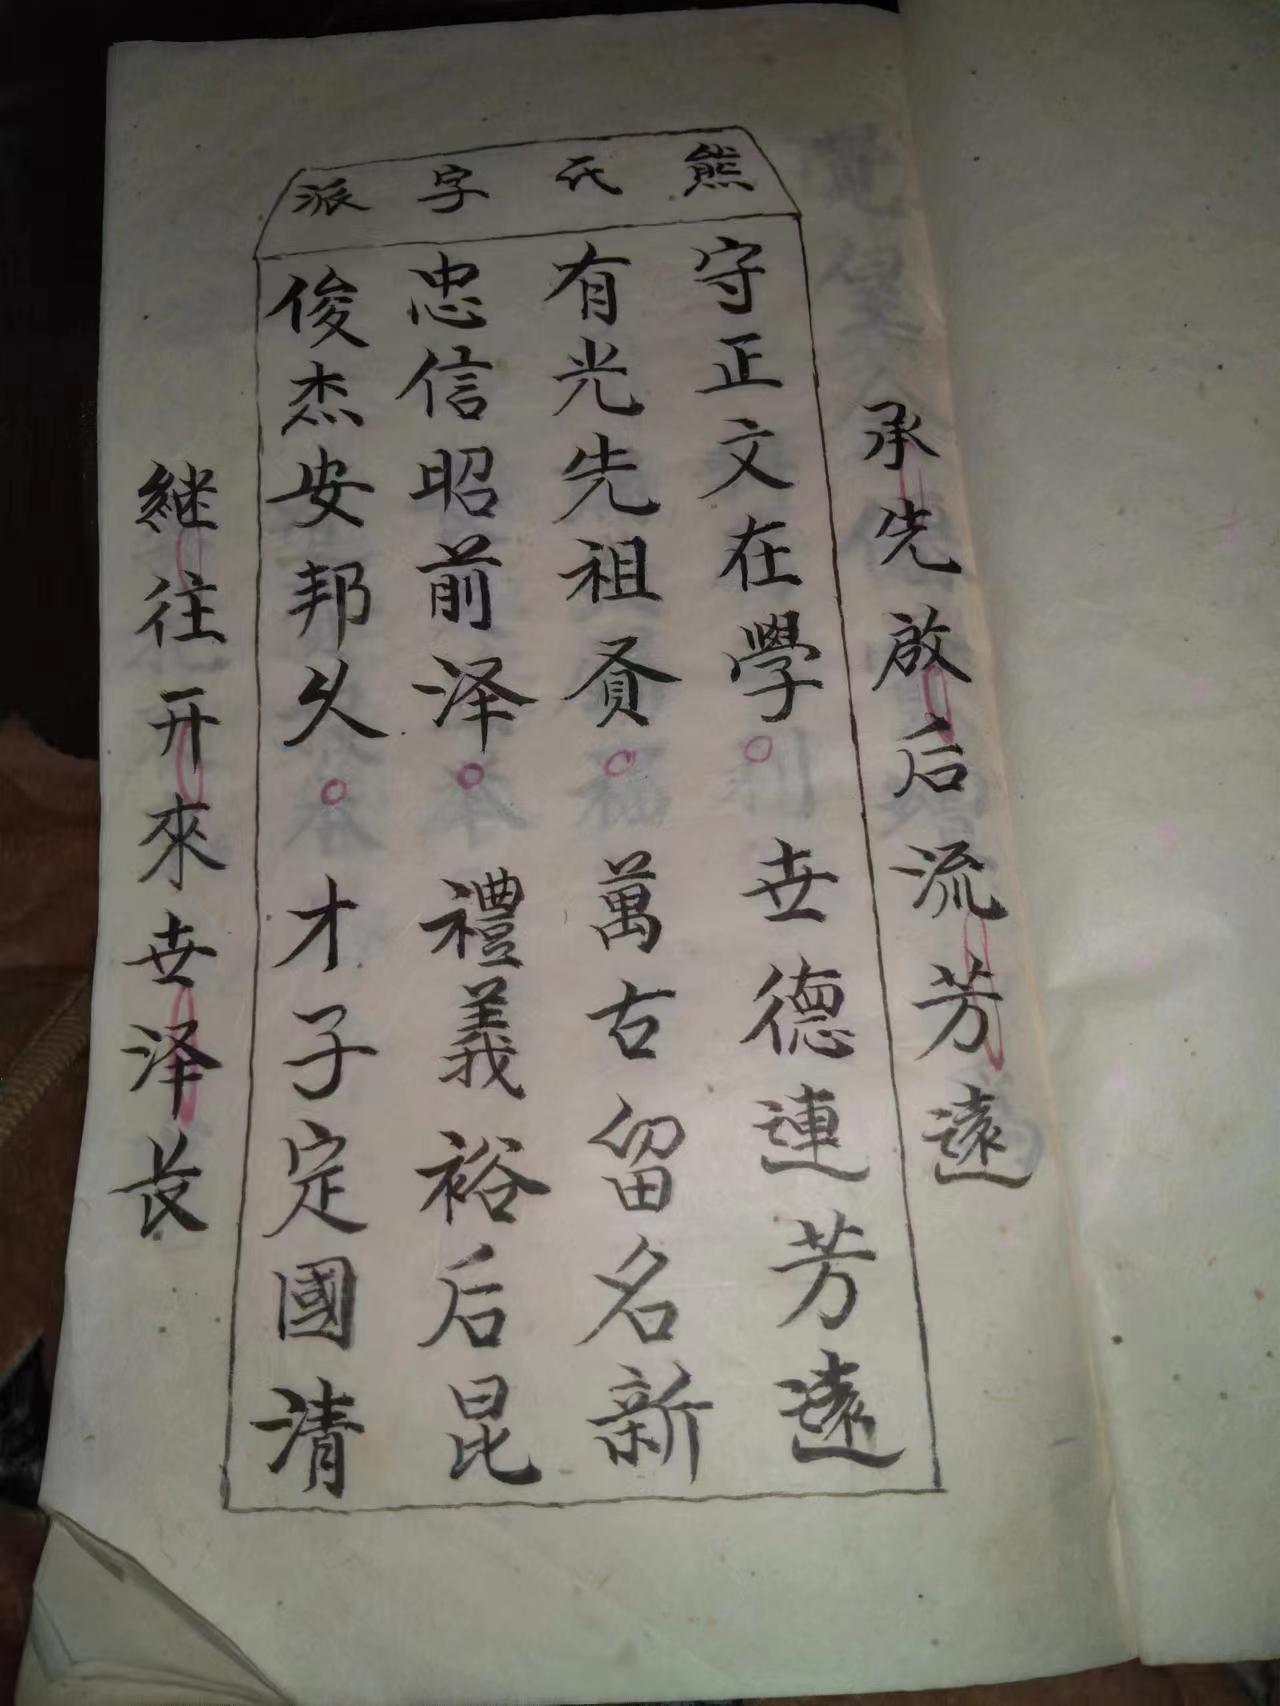 熊氏字派
承先啟后流芳遠
守正文在學。世德連芳遠
有光先祖贤。萬古留名新
忠信昭前泽。禮義裕后昆
俊杰安邦久。才子定國清
継往开來世泽长